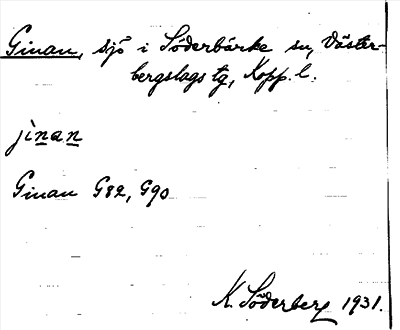 Ginan, sjö i Söderbärke sn, Väster-
bergslags tg, Kopp. l.
jìnan
Ginan G82, G90
K. Söderberg 1931.